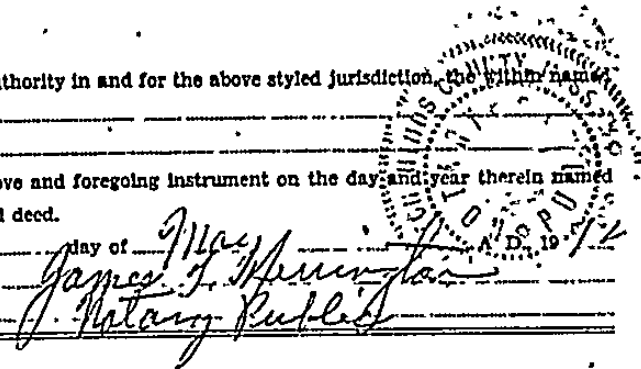 uthority in and for the above styled jurisdiction, the within named
ove and foregoing instrument on the day and year therein named
d deed.
day of May A. D., 19
James T. Herrington
Notary Public
HINDS COUNTY